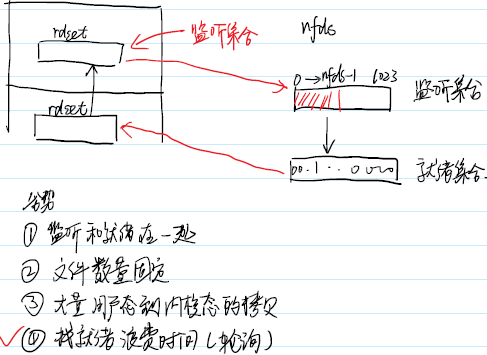 rdset
监听集合
nfds
0→nfds-1 1023
监听集合
rdset
00.1..0000
就绪集合.
劣势
① 监听和就绪在一起
② 文件数量固定
③ 大量用户态到内核态的拷贝
④ 找就绪浪费时间(轮询)